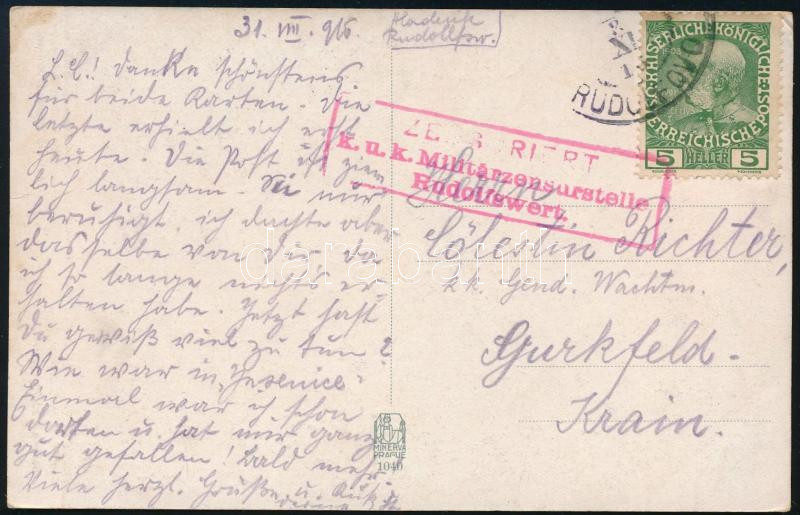 31. VIII. 916.
Rudolfsw.
L. C.! Danke schönstens
für beide Karten. Die
letzte erhielt ich erst
heute. Die Post ist ziem
lich langsam. Sei nur
beruhigt, ich dachte aber
dasselbe von Dir, da
ich so lange nichts er
halten habe. Jetzt hast
Du gewiß viel zu tun?
Wie war in „Jesenice"
Einmal war ich schon
dorten u. hat mir ganz
gut gefallen! Bald mehr.
Viele herzl. Grüße u. Kuß
ZENSURIERT
K. u. k. Militärzensurstelle
Rudolfswert.
RUDOLFOVO
KAISERLICHE KÖNIGLICHE
ÖSTERREICHISCHE POST
1908
5 HELLER 5
Herrn
Cölestin Richter,
k.k. Gend. Wachtm.
Gurkfeld.
Krain.
MINERVA
PRAGUE
1040
darabanth